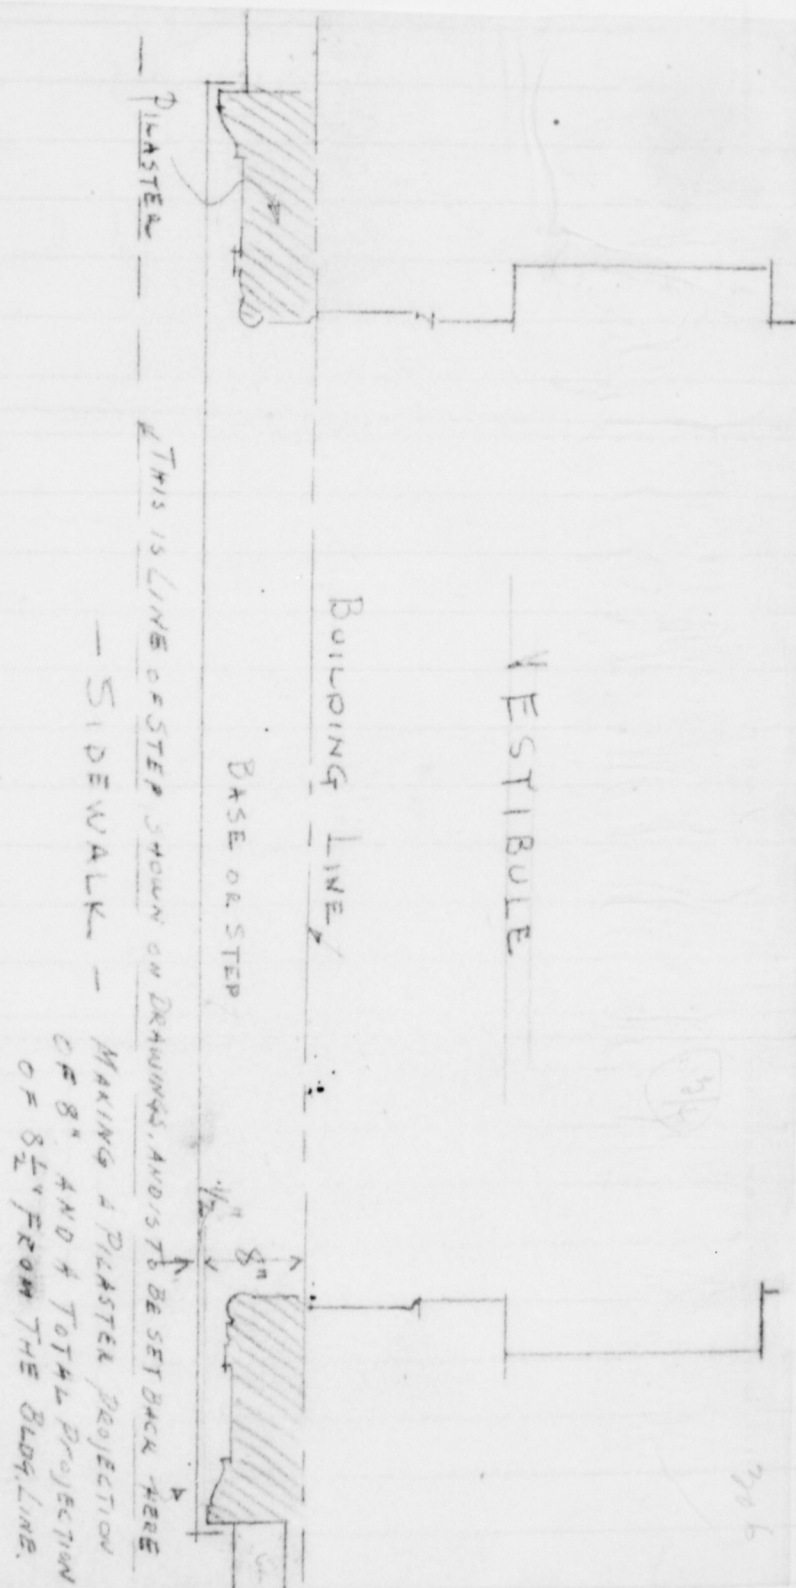 VESTIBULE
BUILDING LINE
BASE OR STEP
1/2"
8"
PILASTER
THIS IS LINE OF STEP SHOWN ON DRAWINGS. AND IS TO BE SET BACK HERE
- SIDEWALK -
MAKING A PILASTER PROJECTION
OF 8" AND A TOTAL PROJECTION
OF 8 1/2" FROM THE BLDG. LINE.